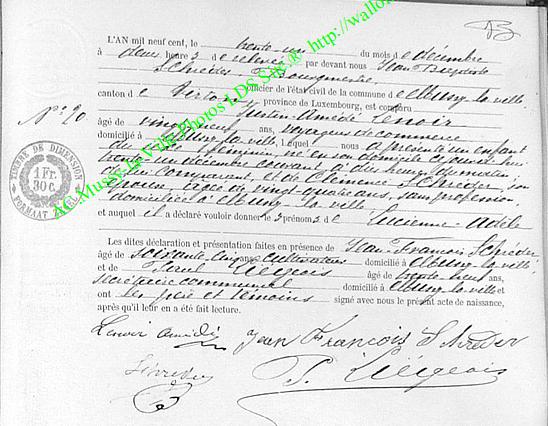 L'AN mil neuf cent, le trente-un du mois de décembre
à deux heures de relevée par devant nous Jean Baptiste
Schreder, Bourgmestre
officier de l'état civil de la commune de Mussy-la-ville
canton de Virton, province de Luxembourg, est comparu
N° 20
Justin Amédé Lenoir
âgé de vingt neuf ans, voyageur de commerce
domicilié à Mussy-la-ville, lequel nous a présenté un enfant
du sexe féminin né en son domicile ce jourd'hui
trente un décembre courant à dix heures du matin
de lui comparant, et de Clémence Schreder, son
épouse, âgée de vingt-quatre ans, sans profession
domiciliée à Mussy-la-ville
et auquel il a déclaré vouloir donner les prénoms de Lucienne-Adèle
Les dites déclaration et présentation faites en présence de Jean-François Schreder
âgé de soixante cinq ans cultivateur domicilié à Mussy-la-ville
et de Paul Liégeois âgé de trente neuf ans,
secrétaire communal domicilié à Mussy-la-ville et
ont les père et témoins signé avec nous le présent acte de naissance,
après qu'il leur en a été fait lecture.
Lenoir Amédé Jean François Schreder
P. Liégeois
TIMBRE DE DIMENSION
1 Fr.
30 C.
FORMAAT ZEGEL
AC Mussy-la-Ville Photos LDS Site © http://wallo